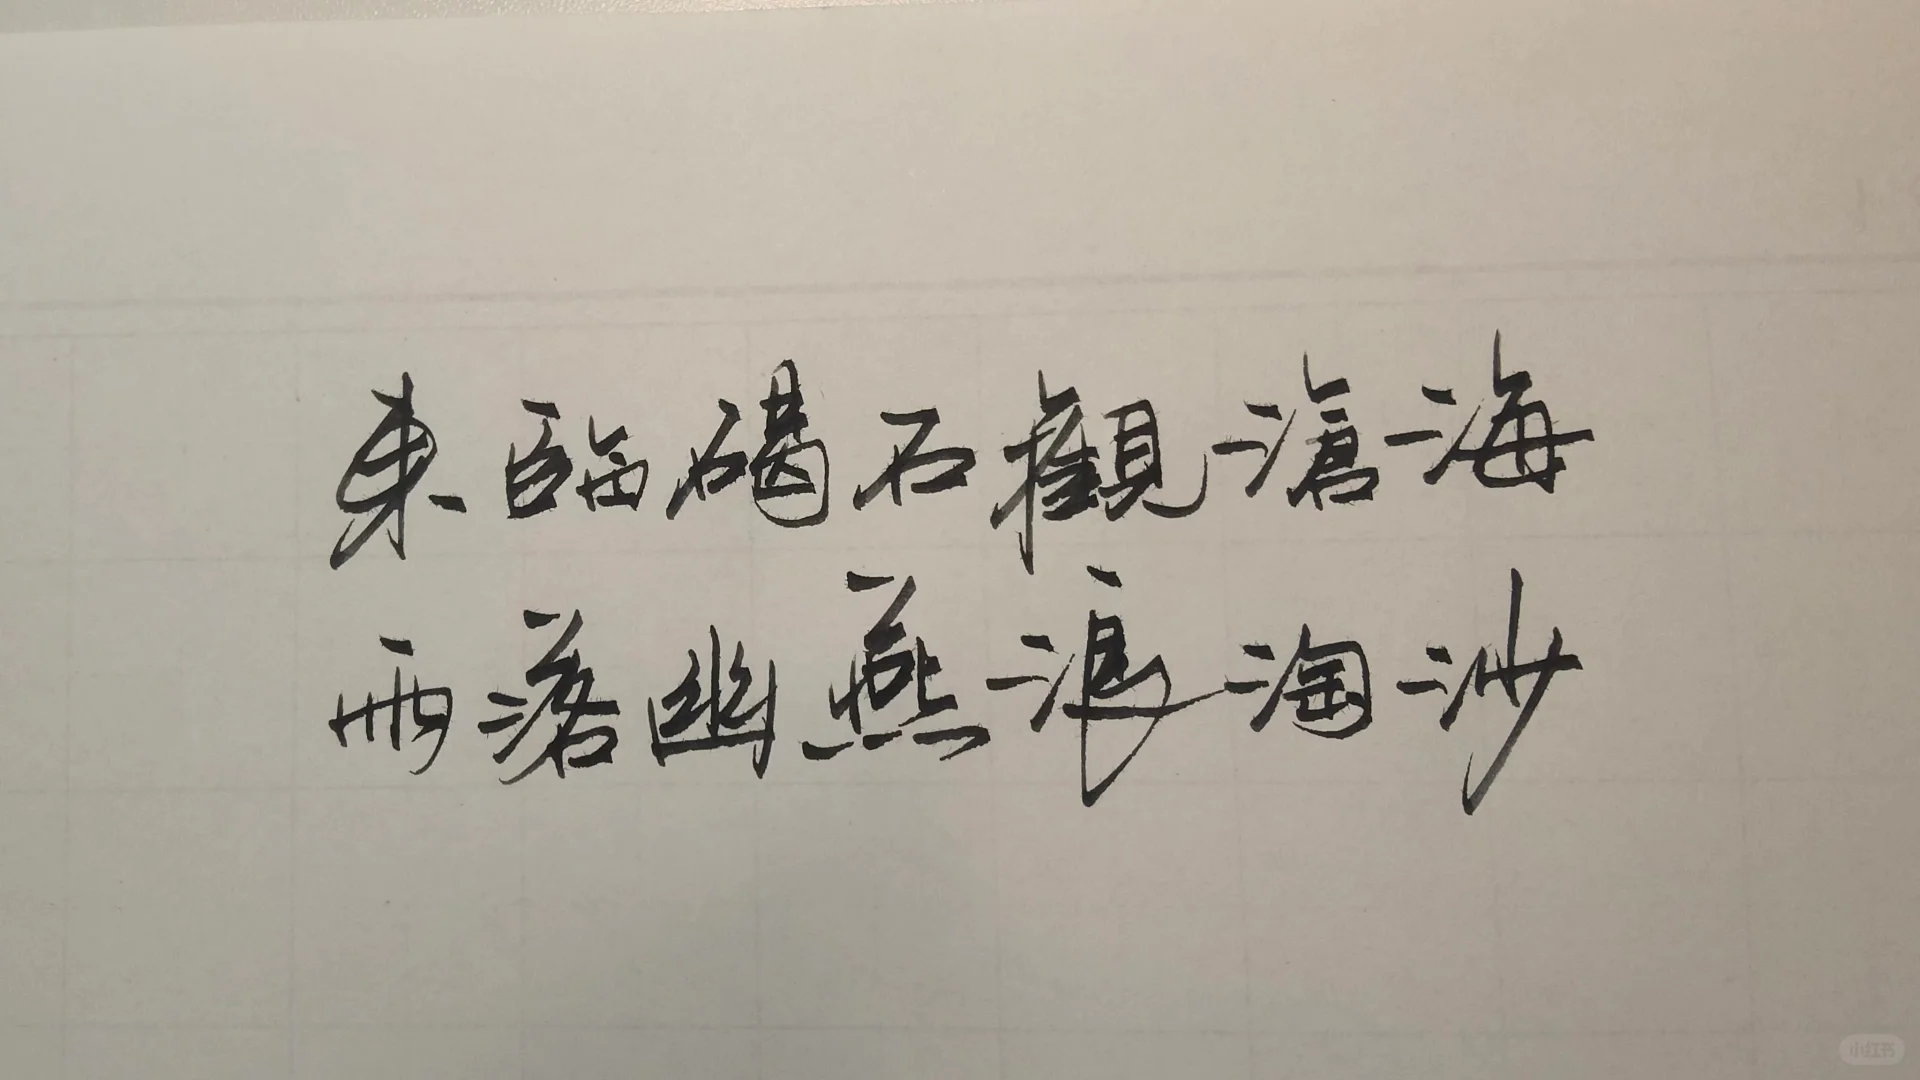 東臨碣石觀滄海
雨落幽燕浪淘沙
小红书